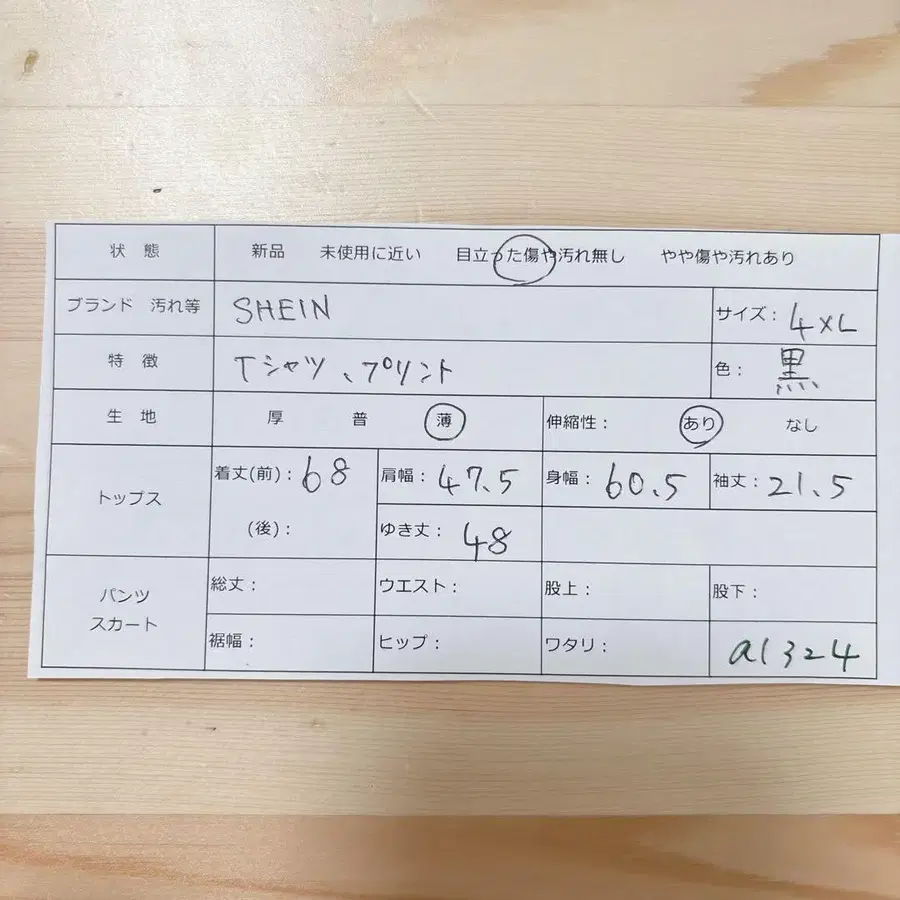 状態 新品 未使用に近い 目立った傷や汚れ無し やや傷や汚れあり
ブランド 汚れ等 SHEIN サイズ: 4XL
特徴 Tシャツ、プリント 色: 黒
生地 厚 普 薄 伸縮性: あり なし
トップス 着丈(前): 68 肩幅: 47.5 身幅: 60.5 袖丈: 21.5
(後): ゆき丈: 48
パンツ 総丈: ウエスト: 股上: 股下:
スカート 裾幅: ヒップ: ワタリ: a1324